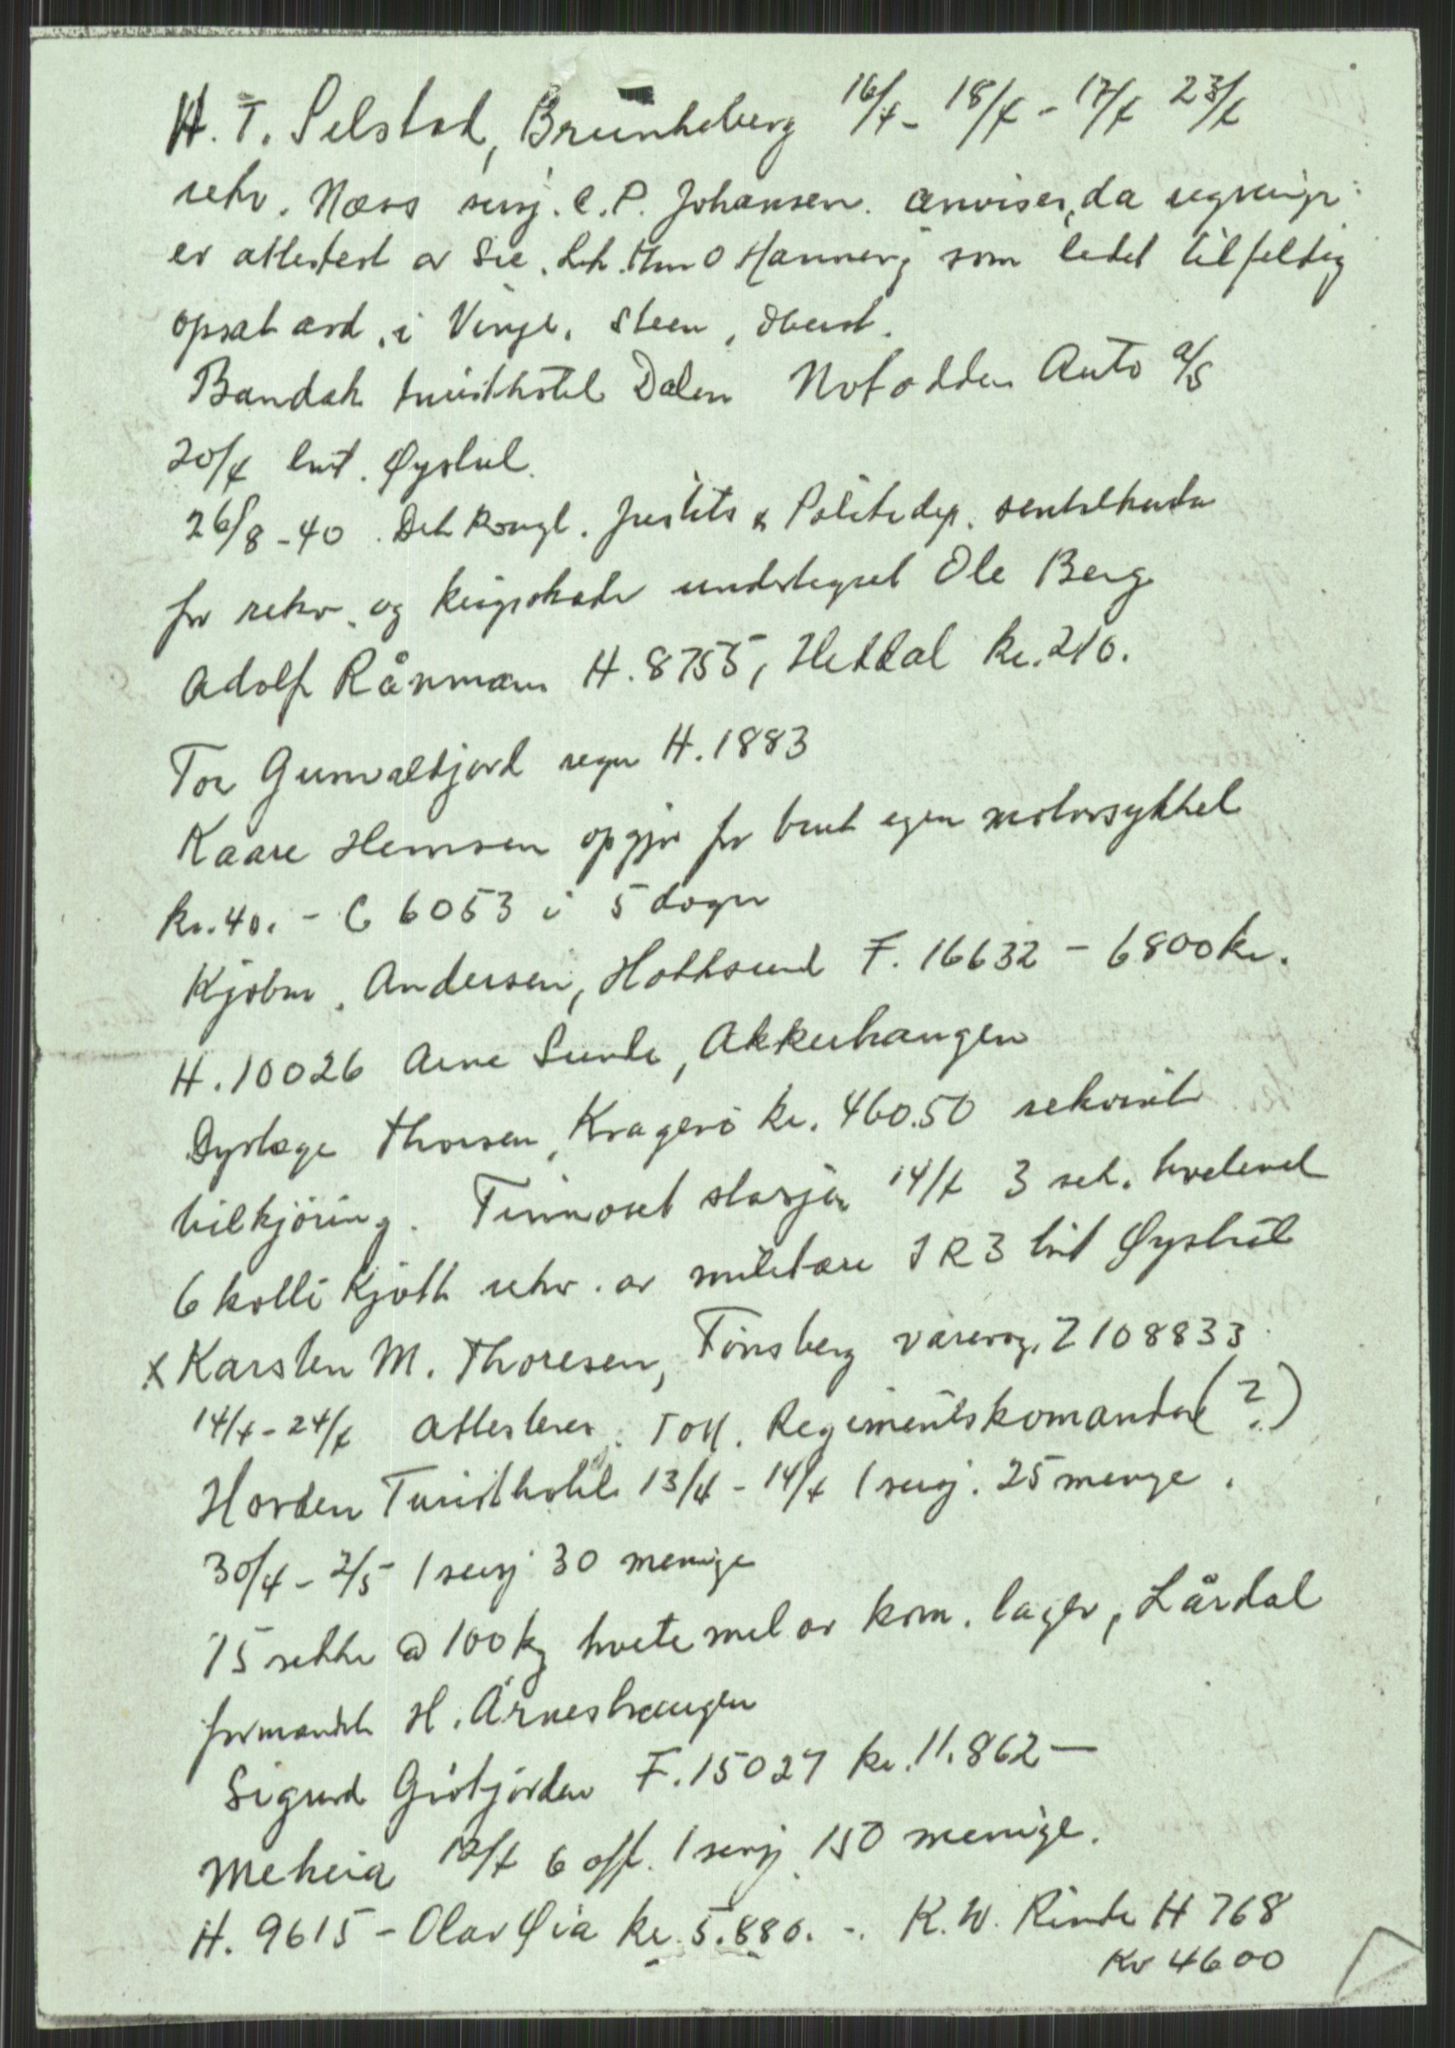 H. T. Selstad, Brunkeberg 16/4 - 18/4 - 17/4 23/4
rekv. Næss serj. C. P. Johansen. anviser, da regninge
er attestert av Hannevig som ledet tilfeldig
opsat avd. i Vinje. Steen, oberst.
Bandak turisthotel Dalen Notodden Auto a/s
20/4 lnt. Øyslul.
26/8 - 40. Det kongl. Justits & Politidep.
for rekv. og krigsskade undertegnet Ole Berg
Adolf Rånmann H. 8755, Heddal kr. 210.
Tor Gunvaldjord regn H. 1883
Kaare Hemsen opgjør for bruk egen motorsykkel
kr. 40. - C 6053 i 5 døgn
Kjøbm. Andersen, Hokksund F. 16632 - 6800 kr.
H. 10026 Arne Sunde, Akkerhaugen
Dyrlæge Thorsen, Kragerö kr. 460.50 rekvirert
bilkjöring. Tinnoset stasjon 14/4 3 sek. hvetemel
6 kolli kjött rekv. av militære I R 3 lnt Øyslul
x Karsten M. Thoresen, Tönsberg varevog. Z 108833
14/4 - 24/4 attesterer: Toll. Regimentskomandör (?)
Horden Turisthotel 13/4 - 14/4 1 serj. 25 menige.
30/4 - 2/5 1 serj 30 menige
15 sekker @ 100 kg hvetemel av kom. lager, Lårdal
formandsk H. Årneshaugen
Sigurd Grötjorden F. 15027 kr. 11.862 —
Meheia 12/4 6 off. 1 serj 150 menige.
H. 9615 - Olav Øia kr. 5.880. -. K. W. Rinde H 768
Kr 4600